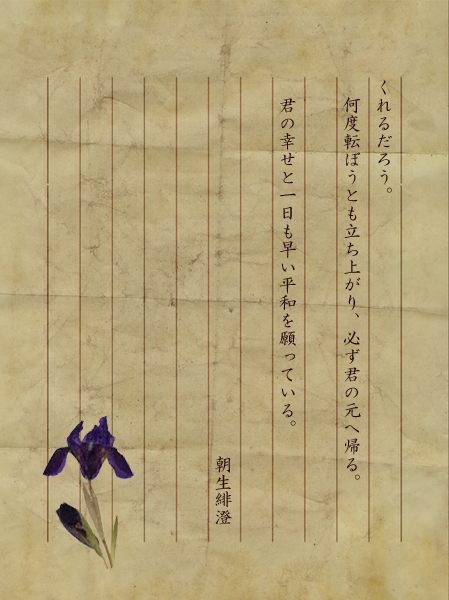 くれるだろう。
何度転ぼうとも立ち上がり、必ず君の元へ帰る。
君の幸せと一日も早い平和を願っている。
朝生緋澄